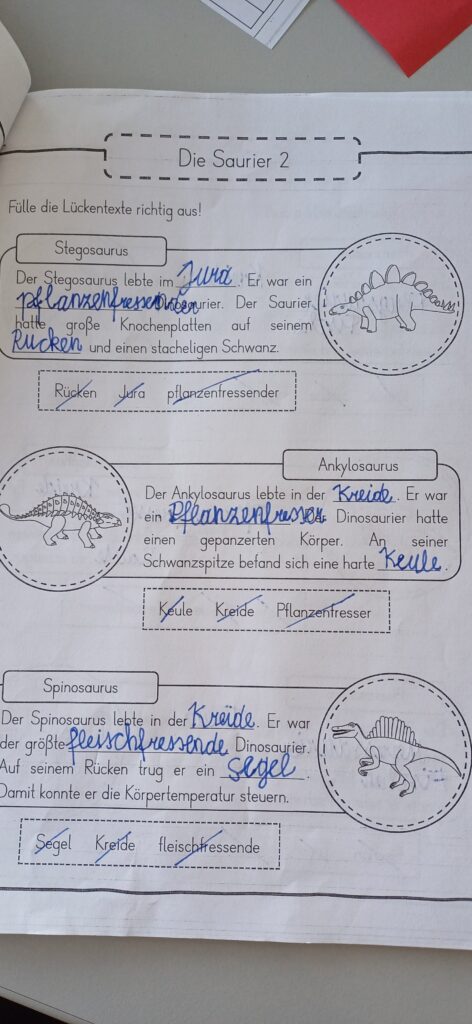 Die Saurier 2
Fülle die Lückentexte richtig aus!
Stegosaurus
Der Stegosaurus lebte im Jura. Er war ein
pflanzenfressender Dinosaurier. Der Saurier
hatte große Knochenplatten auf seinem
Rücken und einen stacheligen Schwanz.
Rücken Jura pflanzenfressender
Ankylosaurus
Der Ankylosaurus lebte in der Kreide. Er war
ein Pflanzenfresser. Der Dinosaurier hatte
einen gepanzerten Körper. An seiner
Schwanzspitze befand sich eine harte Keule.
Keule Kreide Pflanzenfresser
Spinosaurus
Der Spinosaurus lebte in der Kreide. Er war
der größte fleischfressende Dinosaurier.
Auf seinem Rücken trug er ein Segel.
Damit konnte er die Körpertemperatur steuern.
Segel Kreide fleischfressende